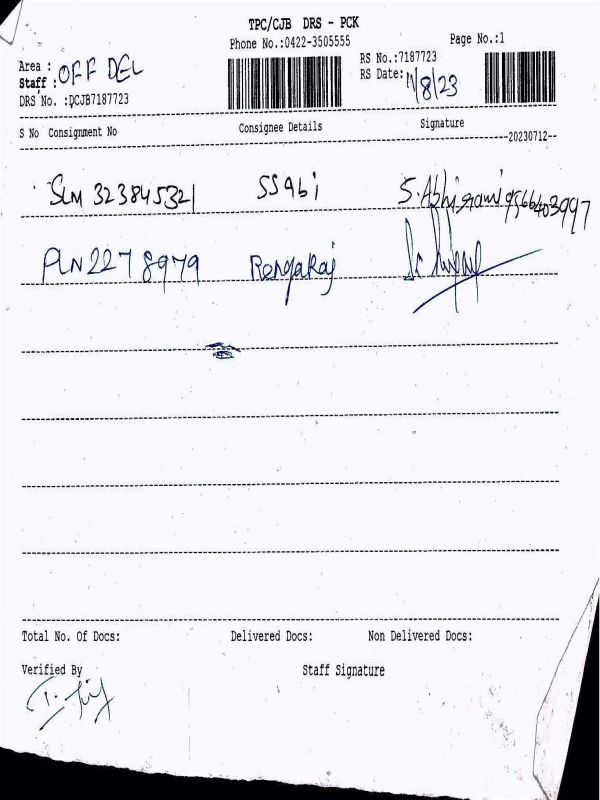 TPC/CJB DRS - PCK
Phone No.:0422-3505555 Page No.:1
Area : OFF DEL
Staff :
RS No.:7187723
RS Date: 11/8/23
DRS No. :DCJB7187723
S No Consignment No Consignee Details Signature
20230712
SLM 323845321 SSabi S. Abhirami 9566403997
PLN 2278979 Rengaraj
Total No. Of Docs: Delivered Docs: Non Delivered Docs:
Verified By Staff Signature